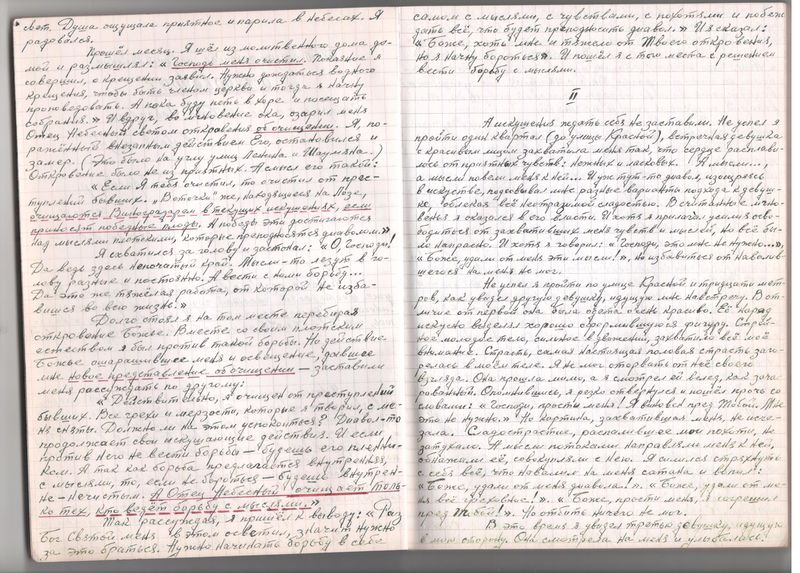 свет. Душа ощущала приятное и парила в небесах. Я
радовался.
Прошёл месяц. Я шёл из молитвенного дома до-
мой и размышлял: «Господь меня очистил. Покаяние я
совершил, о крещении заявил. Нужно дождаться водного
крещения, чтобы быть членом церкви и тогда я начну
проповедовать. А пока буду петь в хоре и посещать
собрания.» И вдруг, во мгновение ока, озарил меня
Отец Небесный светом откровения об очищении. Я, по-
ражённый внезапным действием Его, остановился и
замер. (Это было на углу улиц Ленина и Шаумяна.)
Откровение было не из приятных. А смысл его такой:
«Если Я тебя очистил, то очистил от прес-
туплений бывших. Веточки же, находящиеся на Лозе,
очищаются Виноградарем в текущих искушениях, если
приносят победные плоды. А победы эти достигаются
над мыслями плотскими, которые преподносятся диаволом.»
Я схватился за голову и застонал: «О, Господи!
Да ведь здесь непочатый край! Мысли-то лезут в го-
лову разные и постоянно. А вести с ними борьбу...
Да это же тяжёлая работа, от которой не изба-
вишься во всю жизнь.»
Долго стоял я на том месте перебирая
откровение Божье. Вместе со своим плотским
естеством я был против такой борьбы. Но действие
Божье ошарашившее меня и освещение, давшее
мне новое представление об очищении — заставили
меня рассуждать по другому:
«Действительно, я очищен от преступлений
бывших. Все грехи и мерзости, которые я творил, с ме-
ня сняты. Должно ли на этом успокоиться? Диавол-то
продолжает свои искушающие действия. И если
против него не вести борьбы — будешь его пленни-
ком. А так как борьба предлагается внутренняя,
с мыслями, то, если не бороться — будешь внутрен-
не-нечистым. А Отец Небесный очищает толь-
ко тех, кто ведёт борьбу с мыслями.»
Так рассуждая, я пришёл к выводу: «Раз
Бог Святый меня в этом осветил, значит нужно
за это браться. Нужно начинать борьбу в себе
самом с мыслями, с чувствами, с похотями и побеж-
дать всё, что будет преподносить диавол.» И я сказал:
«Боже, хоть мне и тяжело от Твоего откровения,
но я начну бороться». И пошёл я с того места с решением
вести борьбу с мыслями.
II
А искушения ждать себя не заставили. Не успел я
пройти один квартал (до улицы Красной), встречная девушка
с красивым лицом захватила меня так, что сердце расплави-
лось от приятных чувств: нежных и ласковых. А мысли...,
а мысли повели меня к ней... И уж тут-то диавол, изощряясь
в искустве, подсовывал мне разные варианты подхода к девуш-
ке, облекая всё неотразимой сладостью. В считанные мгно-
венья я оказался в его власти. И хотя я прилагал усилия осво-
бодиться от захвативших меня чувств и мыслей, но всё бы-
ло напрасно. И хотя я говорил: «Господи, это мне не нужно...»,
«Боже, удали от меня эти мысли!», но избавиться от навалив-
шегося на меня не мог.
Не успел я пройти по улице Красной и тридцати мет-
ров, как увидел другую девушку, идущую мне навстречу. В от-
личие от первой она была одета очень красиво. Её наряд
искусно выделял хорошо оформившуюся фигуру. Строй-
ное молодое тело, сильное в движении, захватило всё моё
внимание. Страсть, самая настоящая половая страсть заго-
релась в моём теле. Я не мог оторвать от неё своего
взгляда. Она прошла мимо, а я смотрел ей вслед, как зача-
рованный. Опомнившись, я резко отвернулся и пошёл прочь со
словами: «Господи, прости меня. Я виновен пред Тобой. Мне
это не нужно.» Но картина, захватившая меня, не исче-
зала. Сладострастие, распалившее мои похоти, не
затухало. А мысли потоками направляли меня к ней,
сближали её, совокупляли с нею. Я силился стряхнуть
с себя всё, что навалил на меня сатана и вопил:
«Боже, удали от меня диавола!». «Боже, удали от ме-
ня всё греховное!». «Боже, прости меня, я согрешил
пред Тобой!». Но отбить ничего не мог.
В это время я увидел третью девушку, идущую
в мою сторону. Она смотрела на меня и улыбалась!